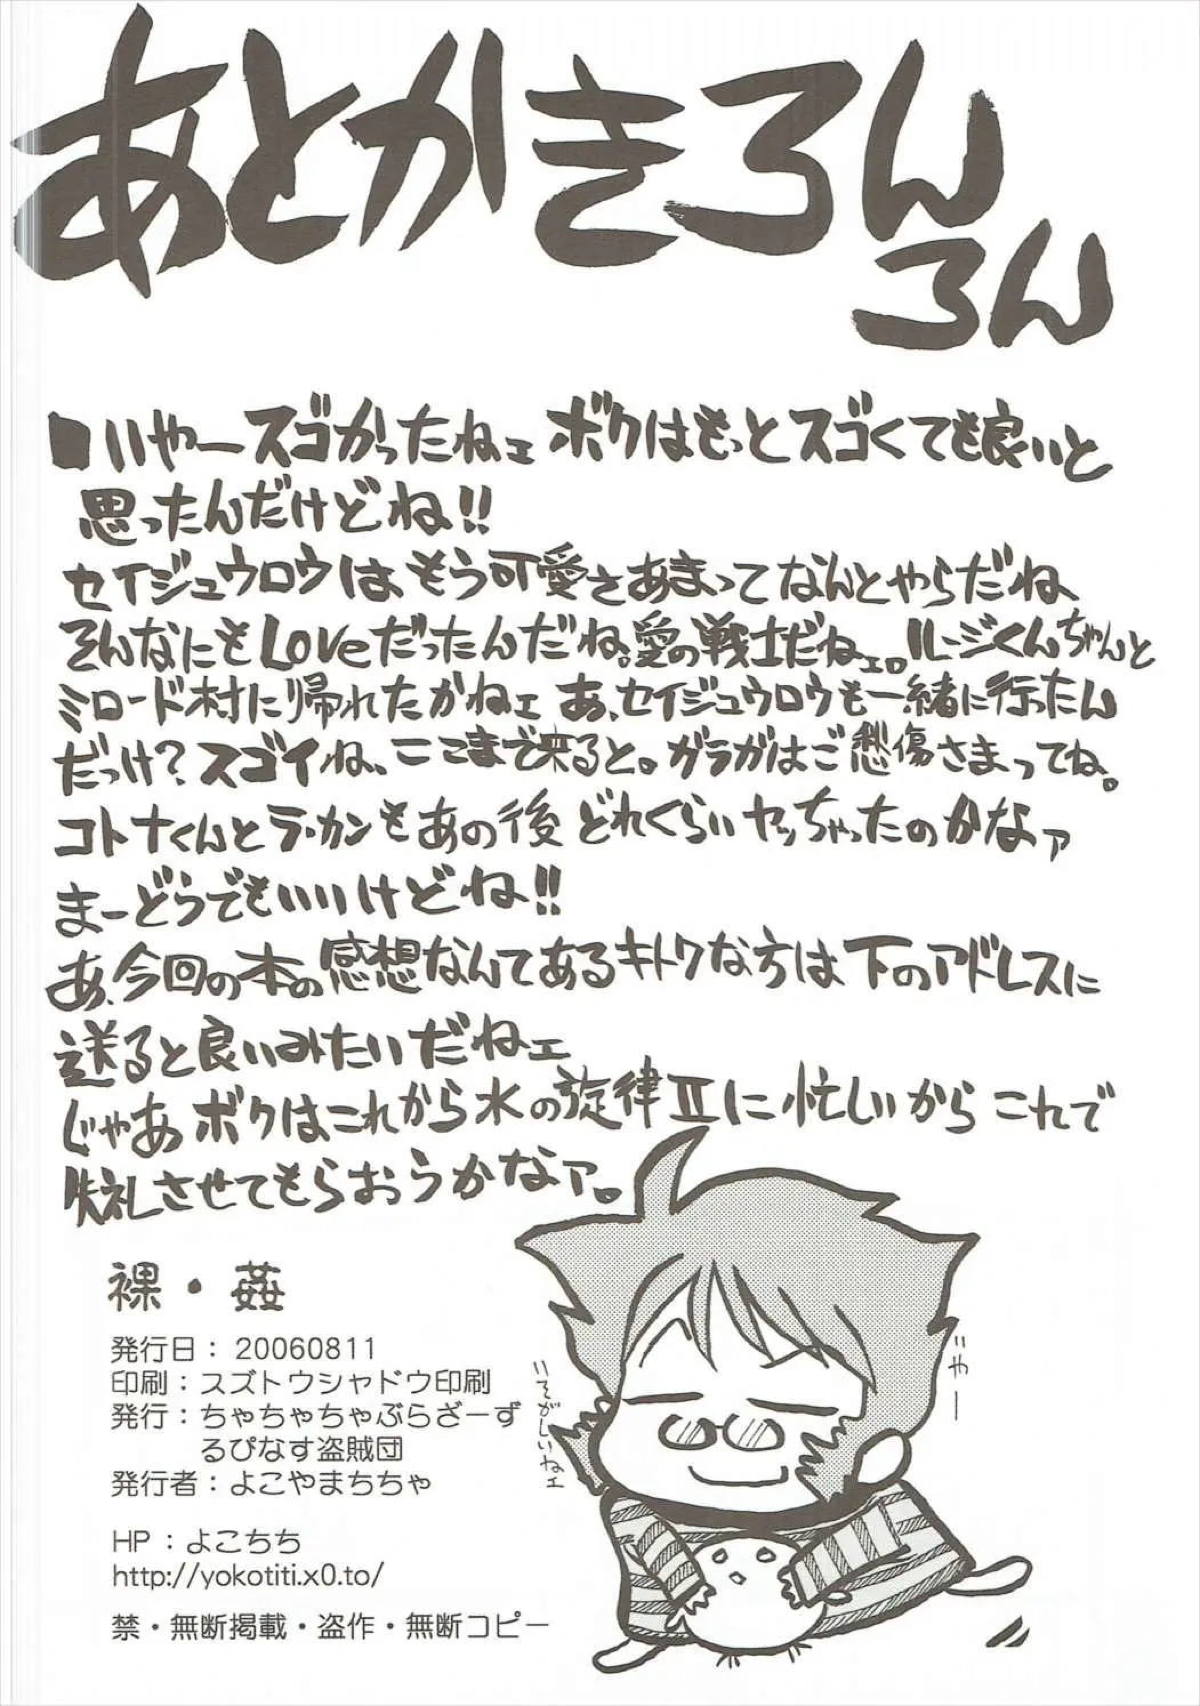 あとかきろん
ろん
■いやースゴかったねェ ボクはもっとスゴくても良いと
思ったんだけどね!!
セイジュウロウは、もう可愛さあまってなんとやらだね
そんなにもLoveだったんだね。愛の戦士だねェ。ルージくんちゃんと
ミロード村に帰れたかねェ あ、セイジュウロウも一緒に行ったん
だっけ?スゴイね、ここまで来ると。ガラガはご愁傷さまってね。
コトナくんとラ・カンもあの後 どれくらいヤッちゃったのかなァ
まーどうでもいいけどね!!
あ、今回の本の感想なんてあるキトクな方は下のアドレスに
送ると良いみたいだねェ
じゃあ ボクはこれから水の旋律Ⅱに忙しいから これで
失礼させてもらおうかなァ。
いやー
いそがしいねェ
裸・姦
発行日: 20060811
印刷:スズトウシャドウ印刷
発行:ちゃちゃちゃぶらざーず
るぴなす盗賊団
発行者:よこやまちちゃ
HP:よこちち
http://yokotiti.x0.to/
禁・無断掲載・盗作・無断コピー